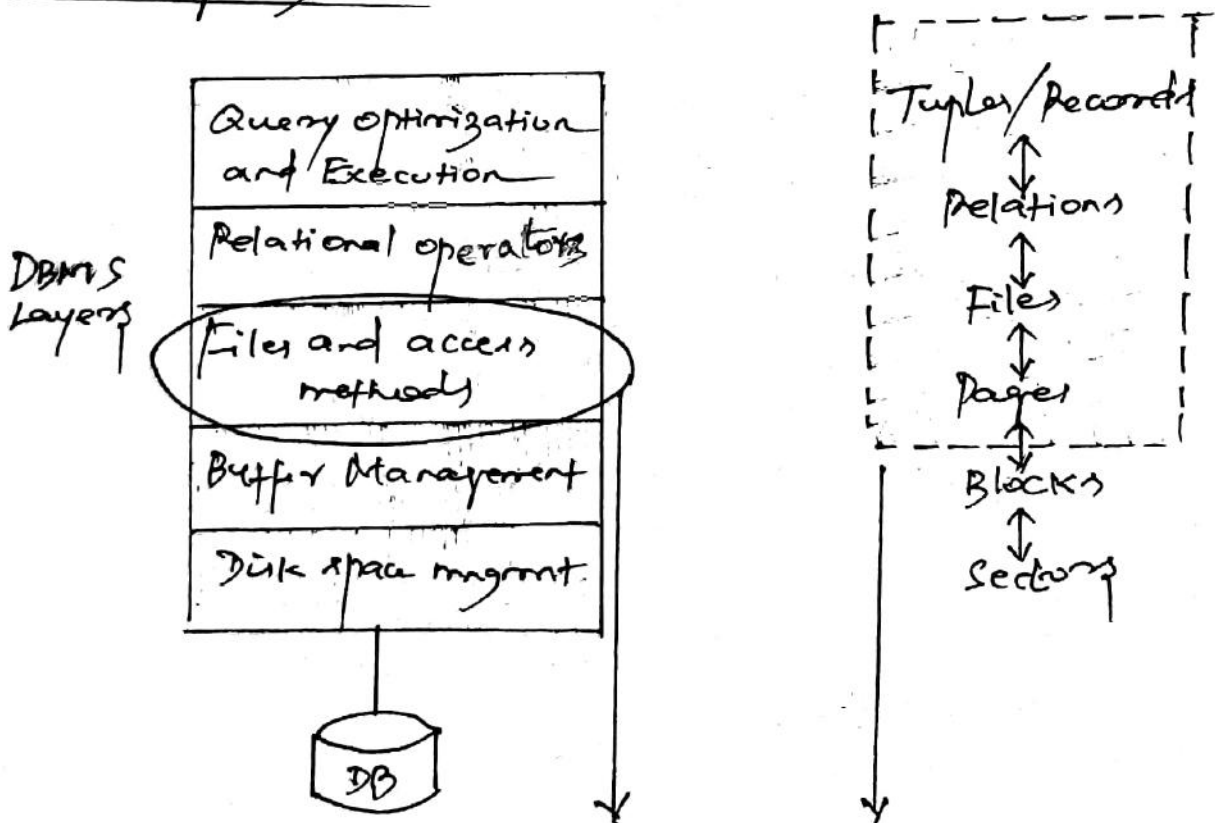 Query optimization
and Execution
Relational operators
DBMS
Layers
Files and access
methods
Buffer Management
Disk space mngmnt
DB
Tuples/Records
Relations
Files
Pages
Blocks
Sectors